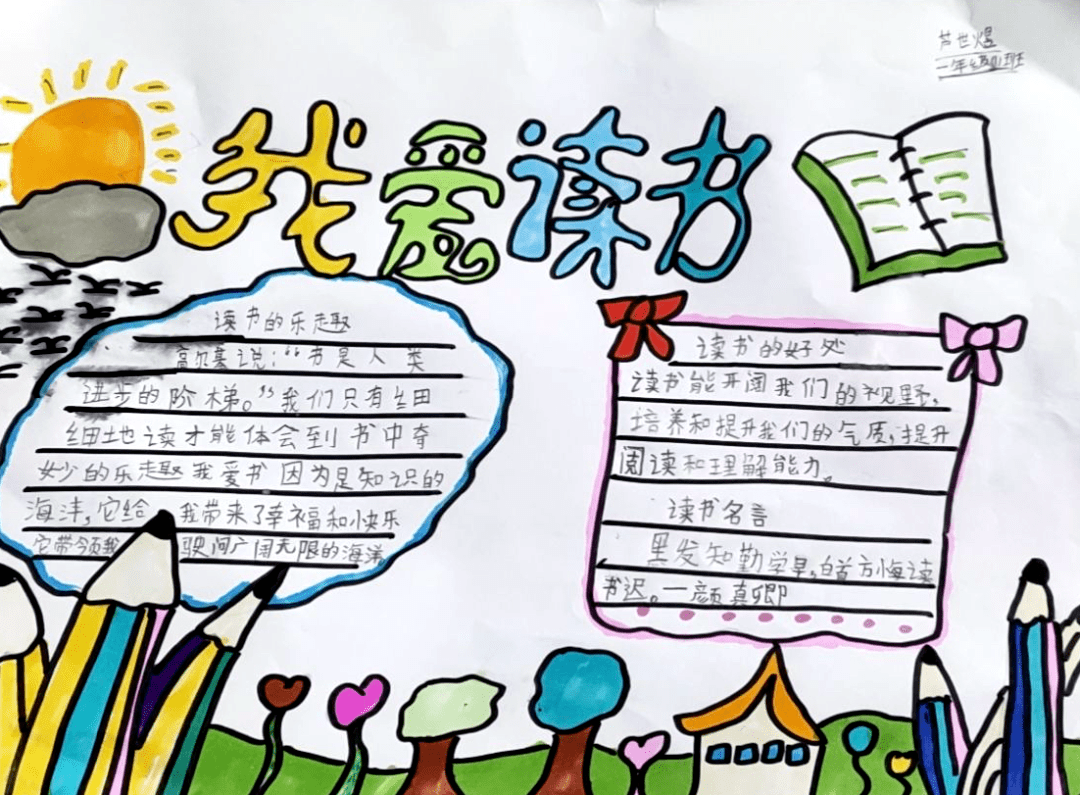 芦世煜
一年级(1)班
我爱读书
读书的乐趣
高尔基说:“书是人类
进步的阶梯。”我们只有细
细地读才能体会到书中奇
妙的乐趣我爱书因为是知识的
海洋,它给我带来了幸福和快乐
它带领我驶向广阔无限的海洋
读书的好处
读书能开阔我们的视野,
培养和提升我们的气质,提升
阅读和理解能力。
读书名言
黑发知勤学早,白首方悔读
书迟。一颜真卿